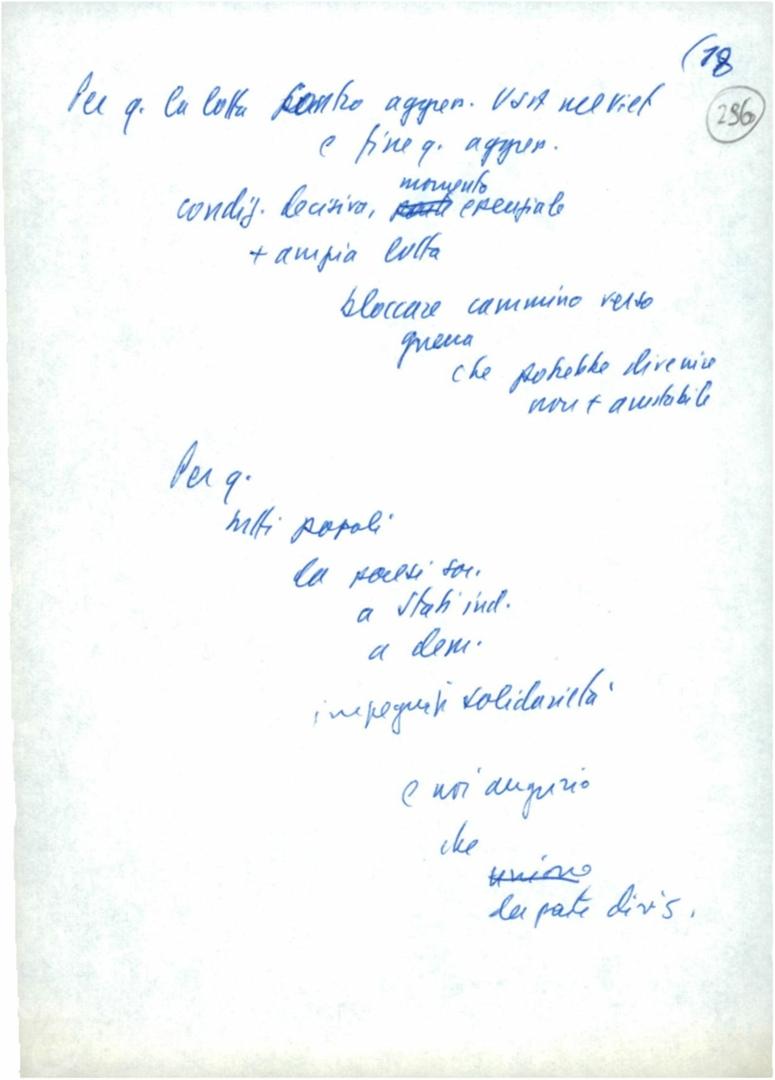 (18
296
Per q. la lotta contro aggres. USA nel Viet
e fine q. aggres.
momento
condiz. decisiva, essenziale
+ ampia lotta
bloccare cammino verso
guerra
che potrebbe divenire
non + arrestabile
Per q.
tutti popoli
da paesi soc.
a Stati ind.
a dem.
impegnati solidarietà
e noi augurio
che
unione
da parte divis.